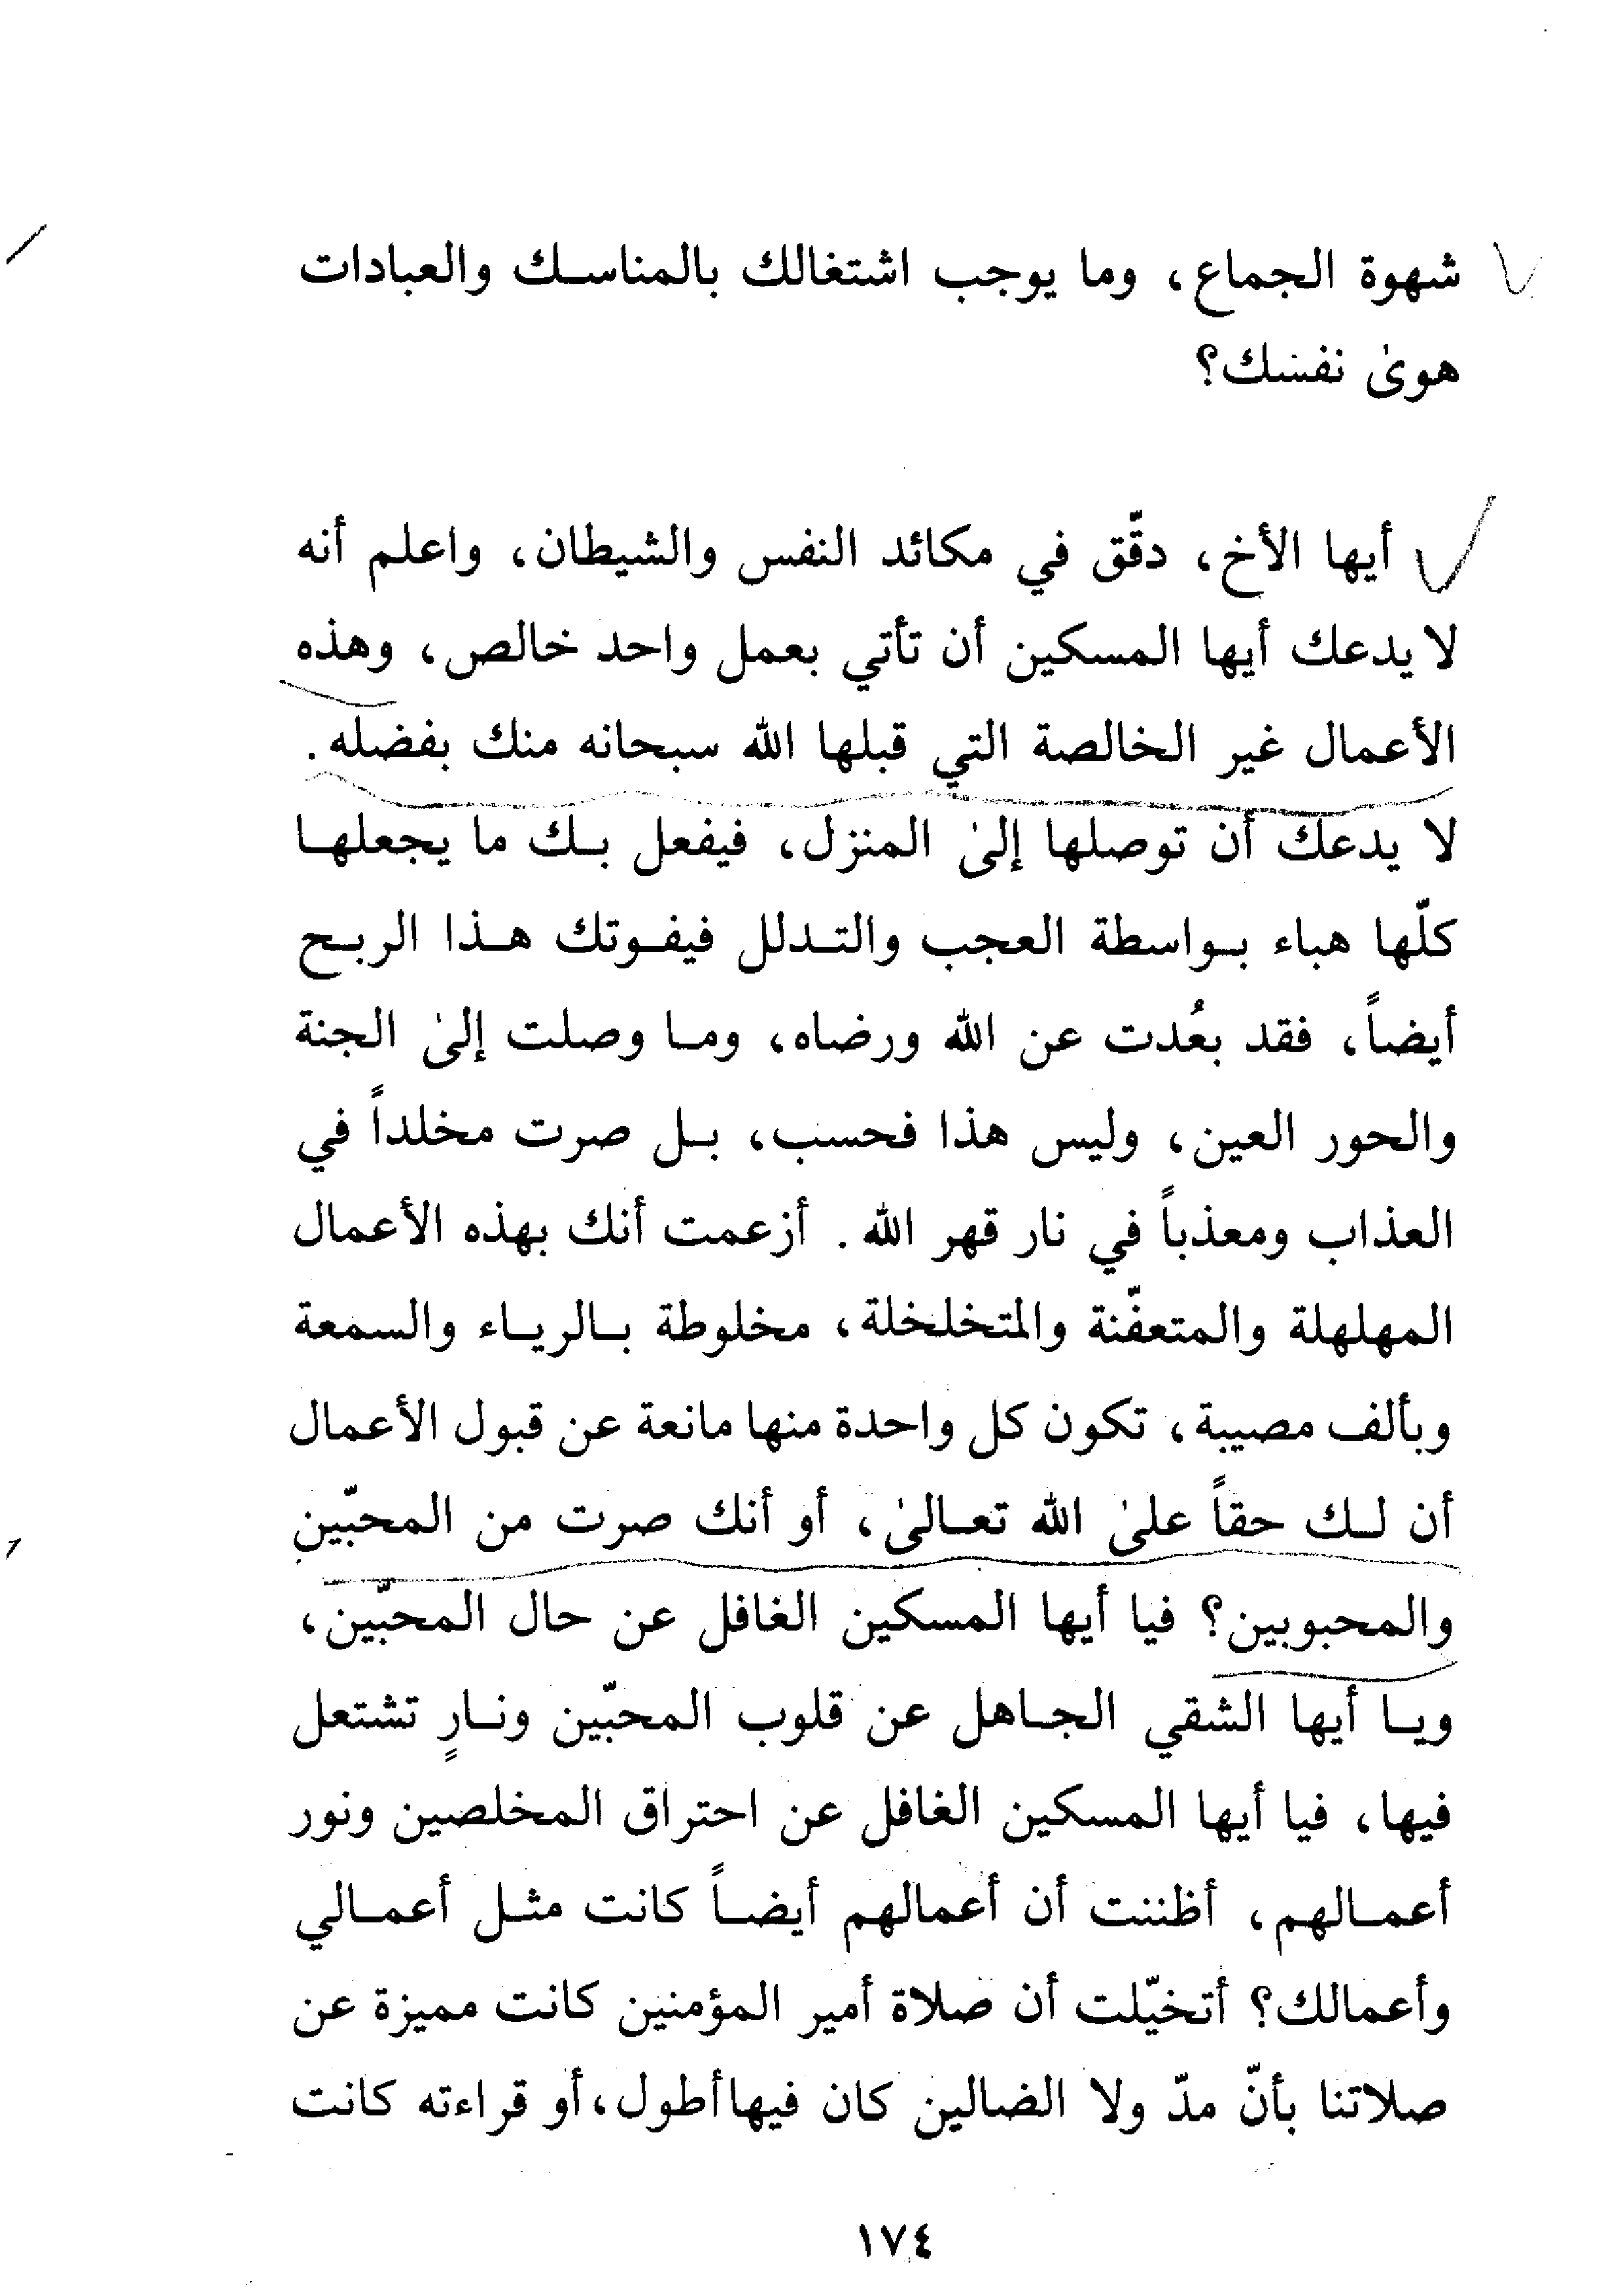 شهوة الجماع، وما يوجب اشتغالك بالمناسك والعبادات
هوىٰ نفسك؟
أيها الأخ، دقّق في مكائد النفس والشيطان، واعلم أنه
لا يدعك أيها المسكين أن تأتي بعمل واحد خالص، وهذه
الأعمال غير الخالصة التي قبلها الله سبحانه منك بفضله.
لا يدعك أن توصلها إلىٰ المنزل، فيفعل بك ما يجعلها
كلّها هباء بواسطة العجب والتدلل فيفوتك هذا الربح
أيضاً، فقد بعُدت عن الله ورضاه، وما وصلت إلىٰ الجنة
والحور العين، وليس هذا فحسب، بل صرت مخلداً في
العذاب ومعذباً في نار قهر الله. أزعمت أنك بهذه الأعمال
المهلهلة والمتعفّنة والمتخلخلة، مخلوطة بالرياء والسمعة
وبألف مصيبة، تكون كل واحدة منها مانعة عن قبول الأعمال
أن لك حقاً علىٰ الله تعالىٰ، أو أنك صرت من المحبّين
والمحبوبين؟ فيا أيها المسكين الغافل عن حال المحبّين،
ويا أيها الشقي الجاهل عن قلوب المحبّين ونارٍ تشتعل
فيها، فيا أيها المسكين الغافل عن احتراق المخلصين ونور
أعمالهم، أظننت أن أعمالهم أيضاً كانت مثل أعمالي
وأعمالك؟ أتخيّلت أن صلاة أمير المؤمنين كانت مميزة عن
صلاتنا بأنّ مدّ ولا الضالين كان فيها أطول، أو قراءته كانت
١٧٤